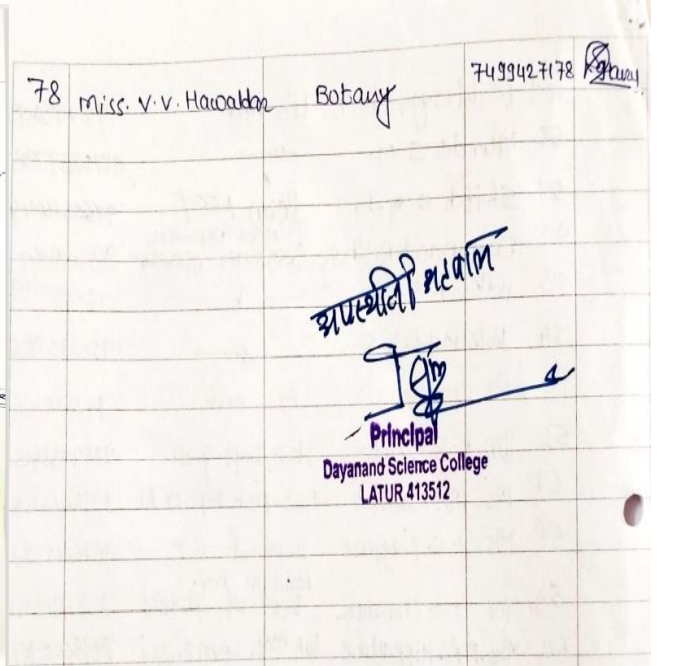 78 Miss. V. V. Hawaldar Botany 7499427178
Principal
Dayanand Science College
LATUR 413512